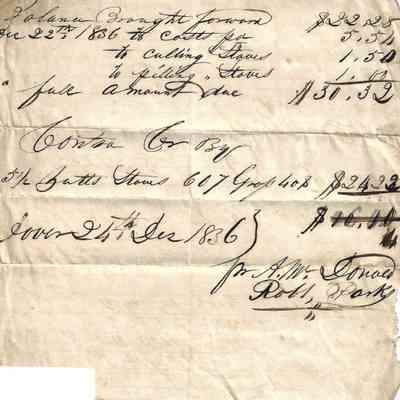 Balance Brought forward $22.28
Dec 22th 1836 to costs pd 5.54
to culling Staves 1.50
to pilling " Staves 1.00
" full Amount due $30.32
Contra Cr By
5½ Butts Staves 607 $24.32
Dover 24th Dec 1836
pr A. Mc Donald
Robt Parks